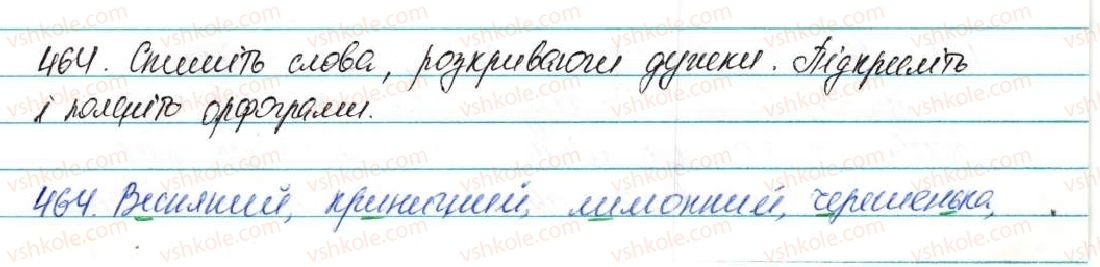 464. Спишіть слова, розкриваючи дужки. Підкресліть
і поясніть орфограми.
464. Весняний, криничний, лимонний, черешенька,